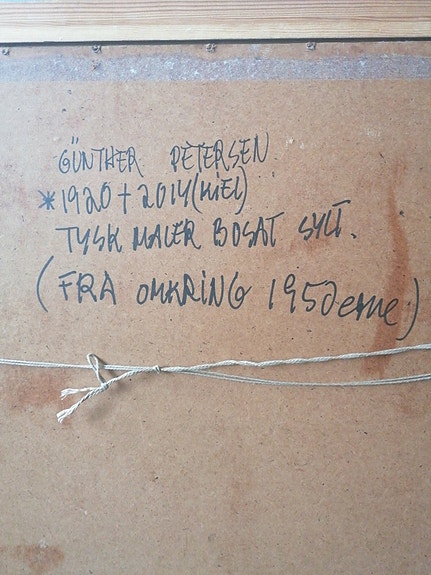 GÜNTHER PETERSEN
*1920+2014(KIEL)
TYSK MALER BOSAT SYLT.
(FRA OMKRING 1950erne)